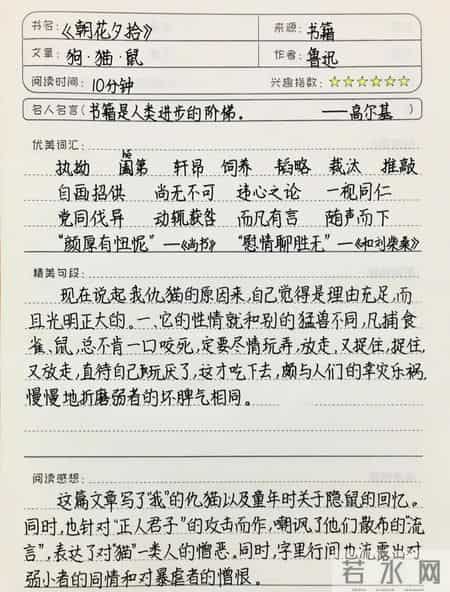 书名:《朝花夕拾》 来源:书籍
文章:狗·猫·鼠 作者:鲁迅
阅读时间:10分钟 兴趣指数:☆☆☆☆☆☆
名人名言(书籍是人类进步的阶梯。 ——高尔基)
优美词汇:
执拗 阖第 轩昂 饲养 韬略 裁汰 推敲
自画招供 尚无不可 违心之论 一视同仁
党同伐异 动辄获咎 而凡有言 随声而下
“颜厚有忸怩”—《尚书》 “慰情聊胜无”—《和刘柴桑》
精美句段:
现在说起我仇猫的原因来,自己觉得是理由充足,而
且光明正大的。一、它的性情就和别的猛兽不同,凡捕食
雀、鼠,总不肯一口咬死,定要尽情玩弄,放走,又捉住,捉住,
又放走,直待自己玩厌了,这才吃下去,颇与人们的幸灾乐祸,
慢慢地折磨弱者的坏脾气相同。
阅读感想:
这篇文章写了“我”的仇猫以及童年时关于隐鼠的回忆。
同时,也针对“正人君子”的攻击而作,嘲讽了他们散布的“流
言”,表达了对“猫”一类人的憎恶。同时,字里行间也流露出对
弱小者的同情和对暴虐者的憎恨。
若水网